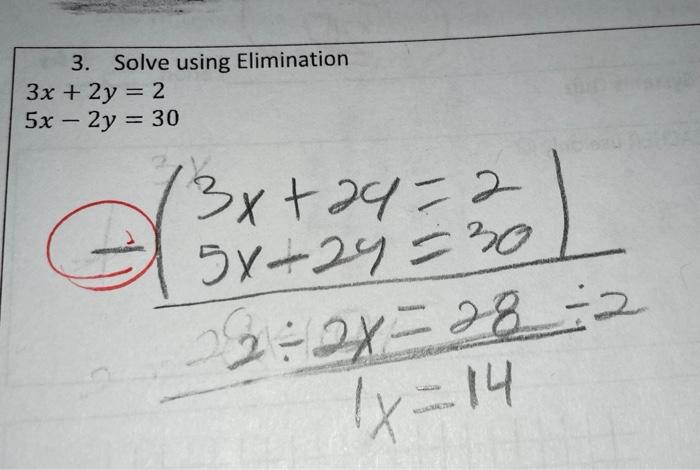 3. Solve using Elimination
3x + 2y = 2
5x − 2y = 30
3x + 2y = 2
− 5x - 2y = 30
2 ÷ 2x = 28 ÷ 2
1x = 14